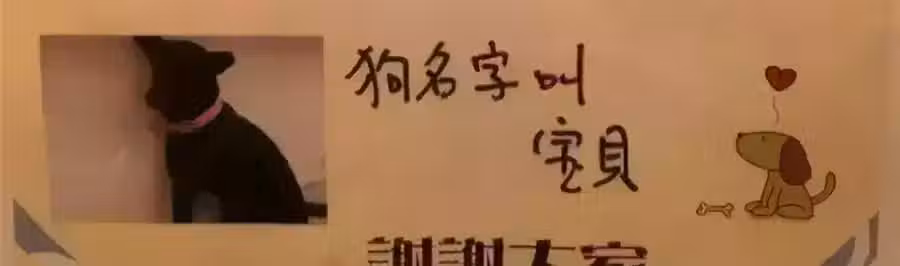 狗名字叫
宝貝
謝謝大家